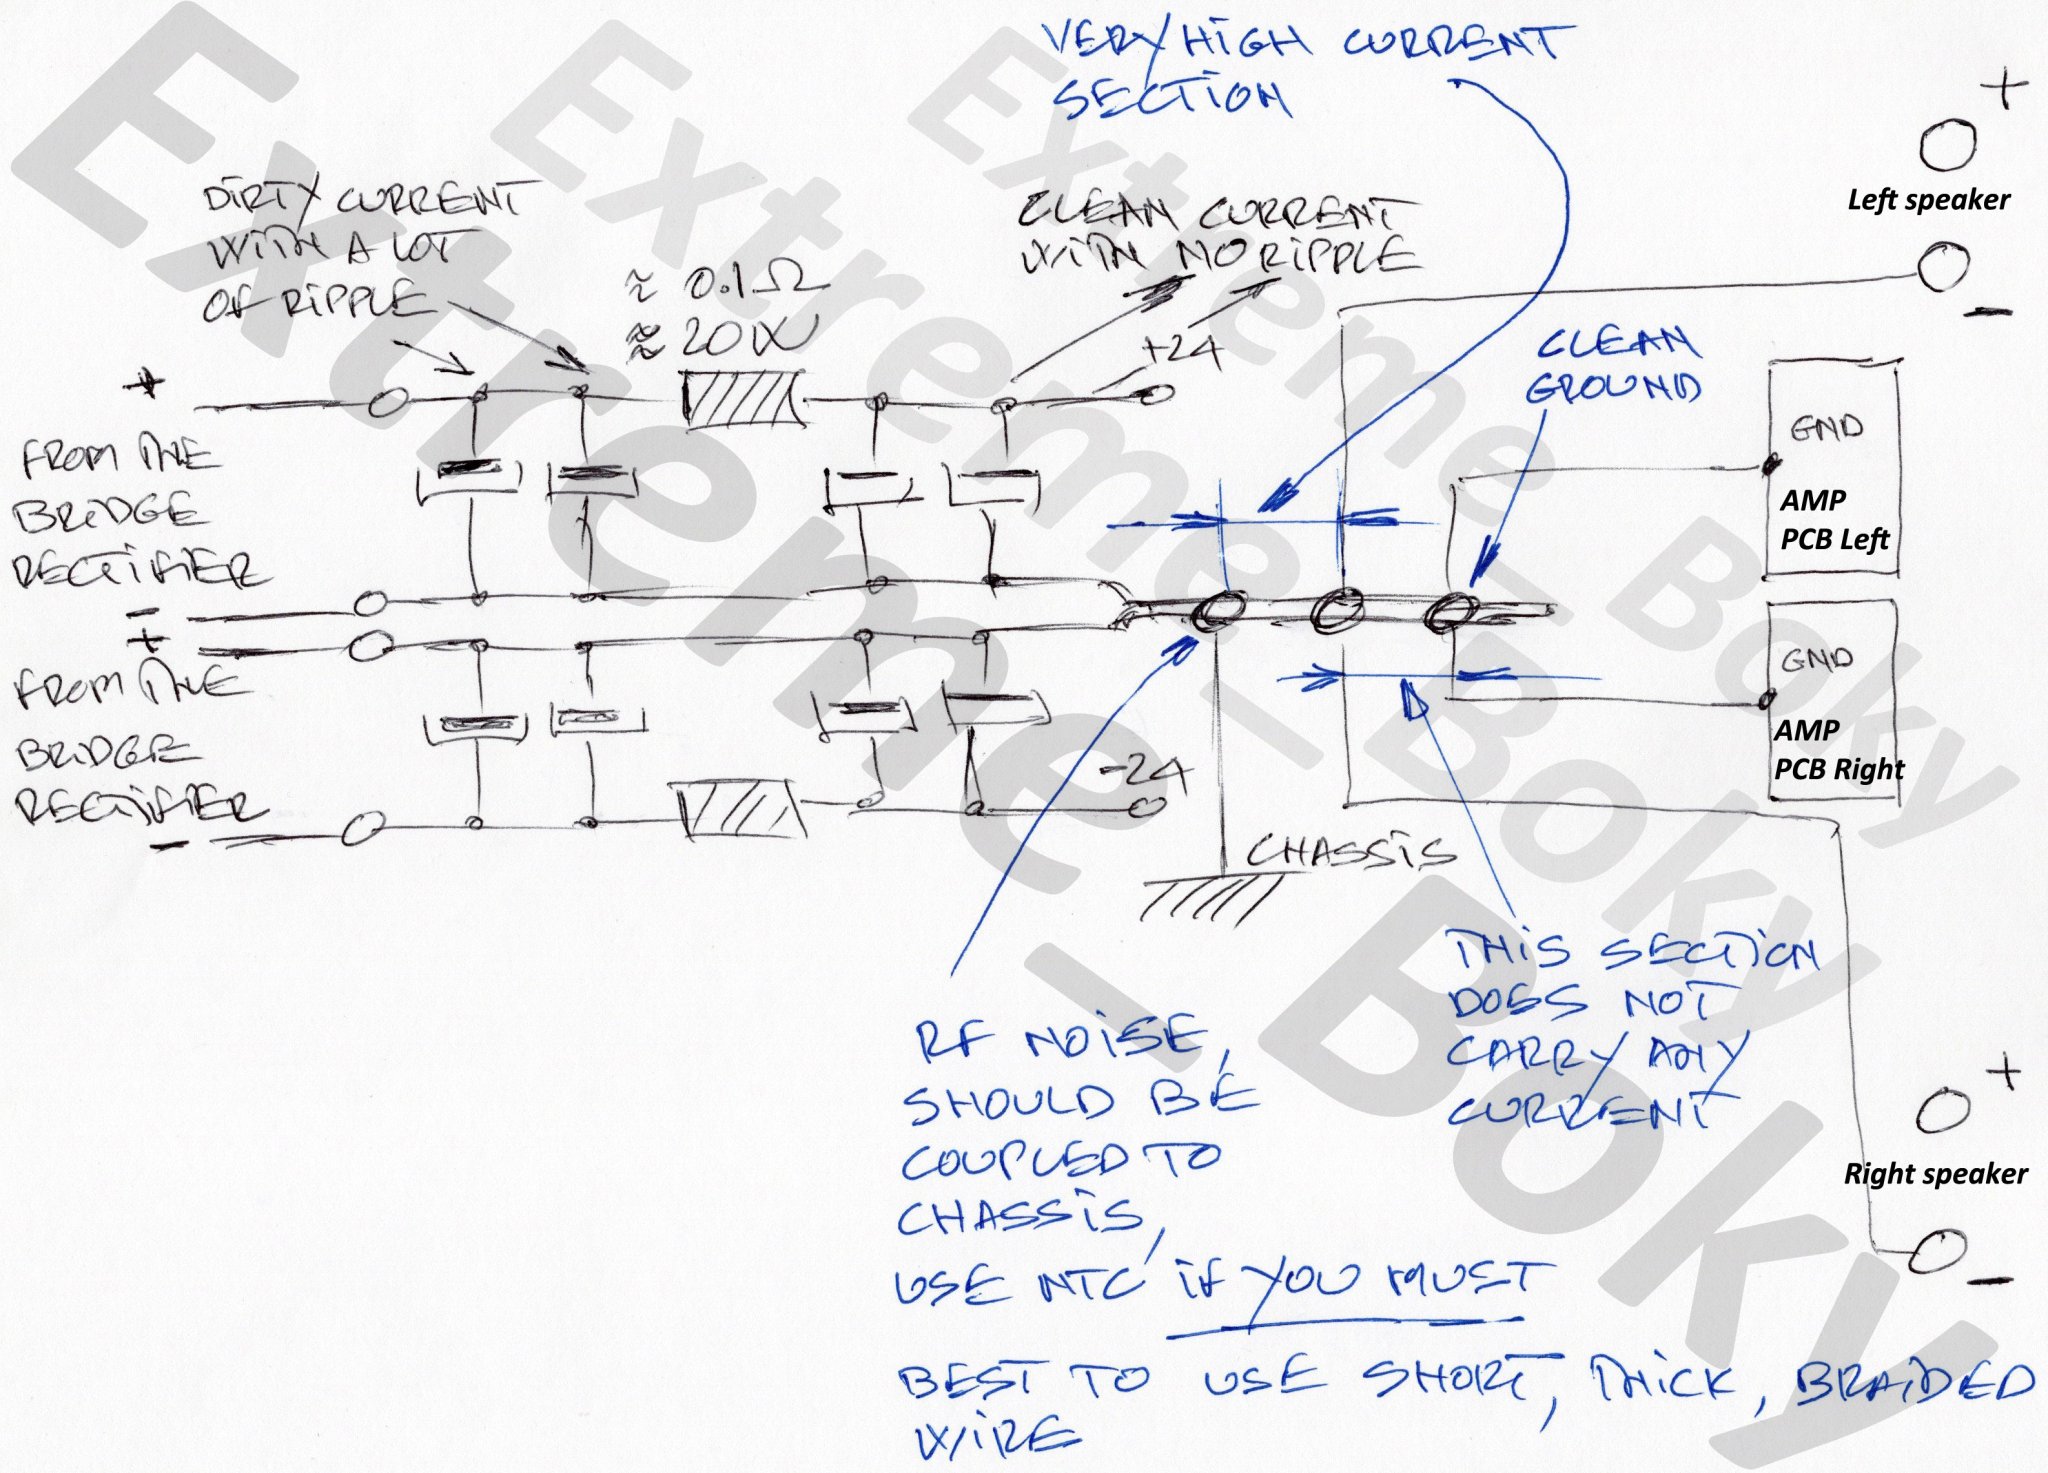 VERY HIGH CURRENT
SECTION
+
Left speaker
-
DIRTY CURRENT
WITH A LOT
OF RIPPLE
≈ 0.1Ω
≈ 20W
CLEAN CURRENT
WITH NO RIPPLE
+24
CLEAN
GROUND
+
FROM THE
BRIDGE
RECTIFIER
-
GND
AMP
PCB Left
+
FROM THE
BRIDGE
RECTIFIER
-
-24
GND
AMP
PCB Right
CHASSIS
THIS SECTION
DOES NOT
CARRY ANY
CURRENT
RF NOISE,
SHOULD BE
COUPLED TO
CHASSIS,
USE NTC IF YOU MUST
BEST TO USE SHORT, THICK, BRAIDED
WIRE
+
Right speaker
-
Extreme_Boky
Extreme_Boky
Extreme_Boky